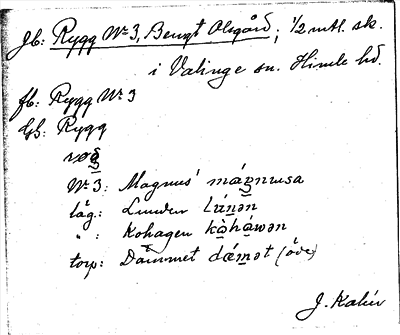 Jb: Rygg No 3, Bengt Olsgård; 1/2 mtl. sk.
i Valinge sn. Himle hd.
fb: Rygg No 3
Gb: Rygg
røg
No 3: Magnus' mágnusa
låg: Lunden lúnən
" : Kohagen kòháwən
torp: Dammet dámət (öde)
J. Kalén